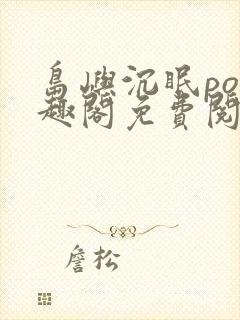 島嶼沉眠po
趣閣免費閱
詹松